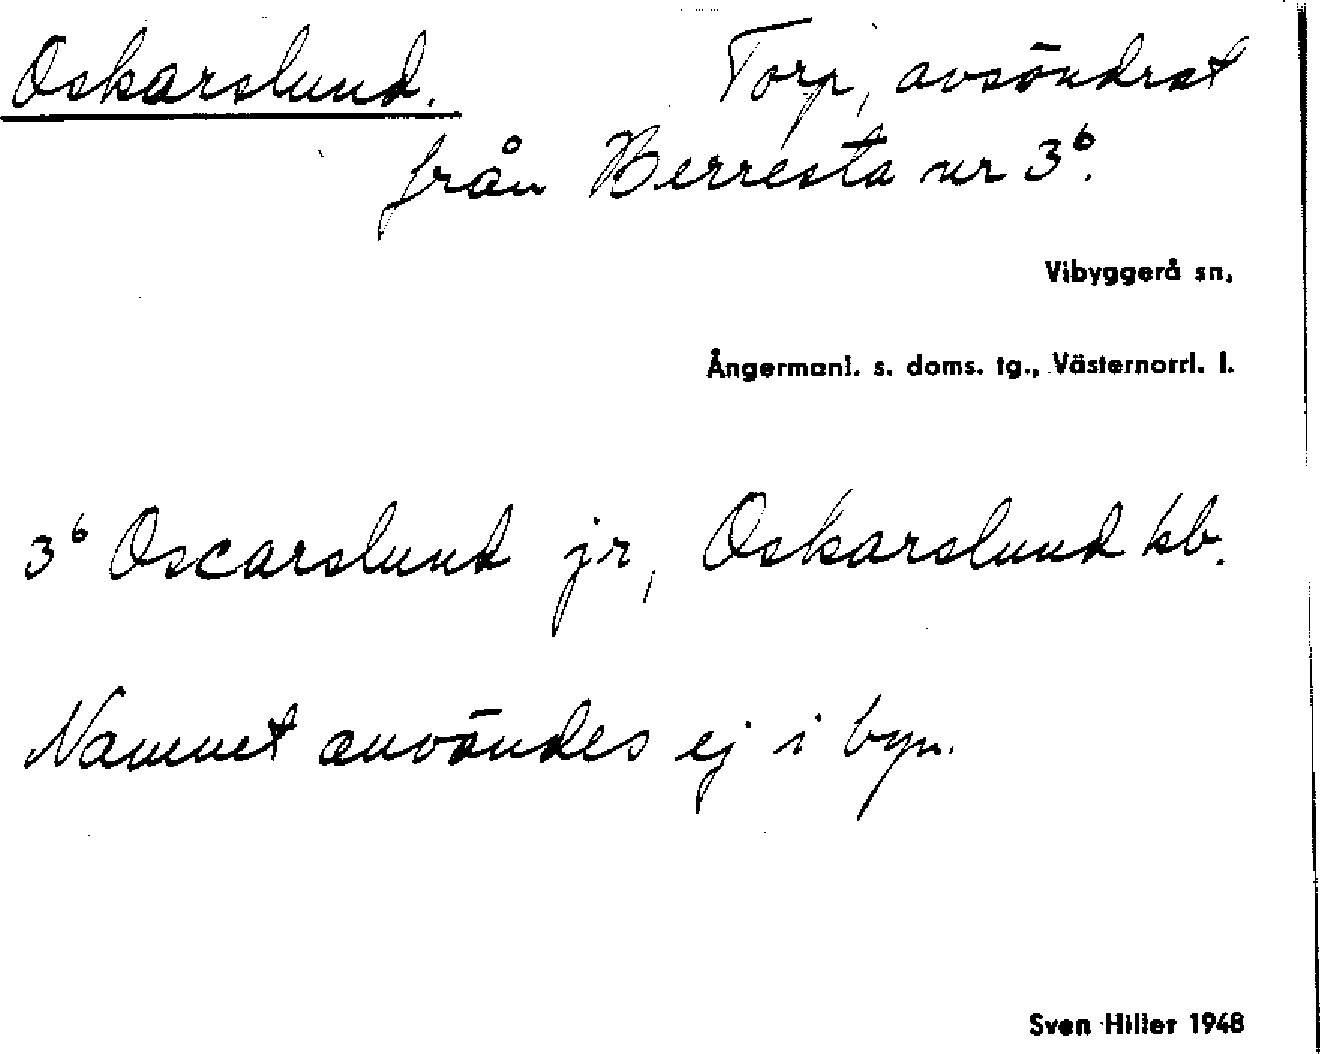 Oskarslund. Torp, avsöndrat
från Berresta nr 3⁶.
Vibyggerå sn,
Ångermanl. s. doms. tg., Västernorrl. l.
3⁶ Oscarslund jr, Oskarslund kb.
Namnet användes ej i byn.
Sven Hiller 1948